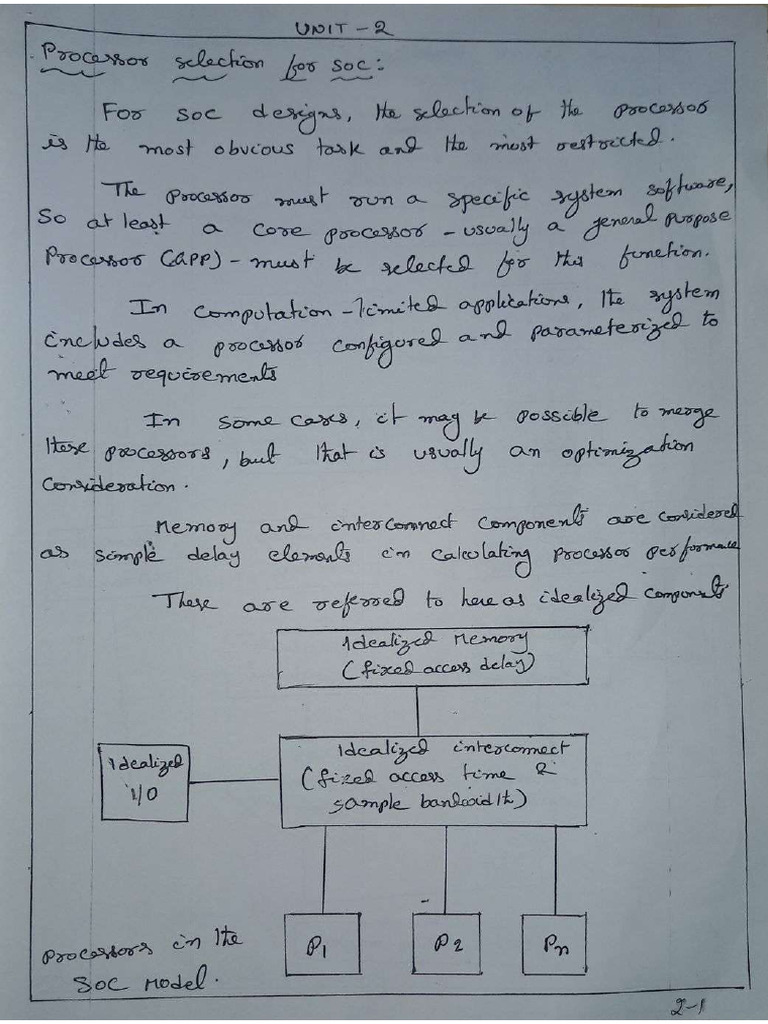 UNIT - 2
Processor selection for SOC:
For SOC designs, the selection of the processor
is the most obvious task and the most restricted.
The processor must run a specific system software,
So at least a core processor - usually a general purpose
Processor (GPP) - must be selected for this function.
In computation - limited applications, the system
includes a processor configured and parameterized to
meet requirements
In some cases, it may be possible to merge
these processors, but that is usually an optimization
Consideration.
Memory and interconnect components are considered
as simple delay elements in calculating processor performance
These are referred to here as idealized components
Idealized Memory
(fixed access delay)
Idealized
I/O
Idealized interconnect
(fixed access time &
sample bandwidth)
P1
P2
Pn
processors in the
SOC Model.
2-1